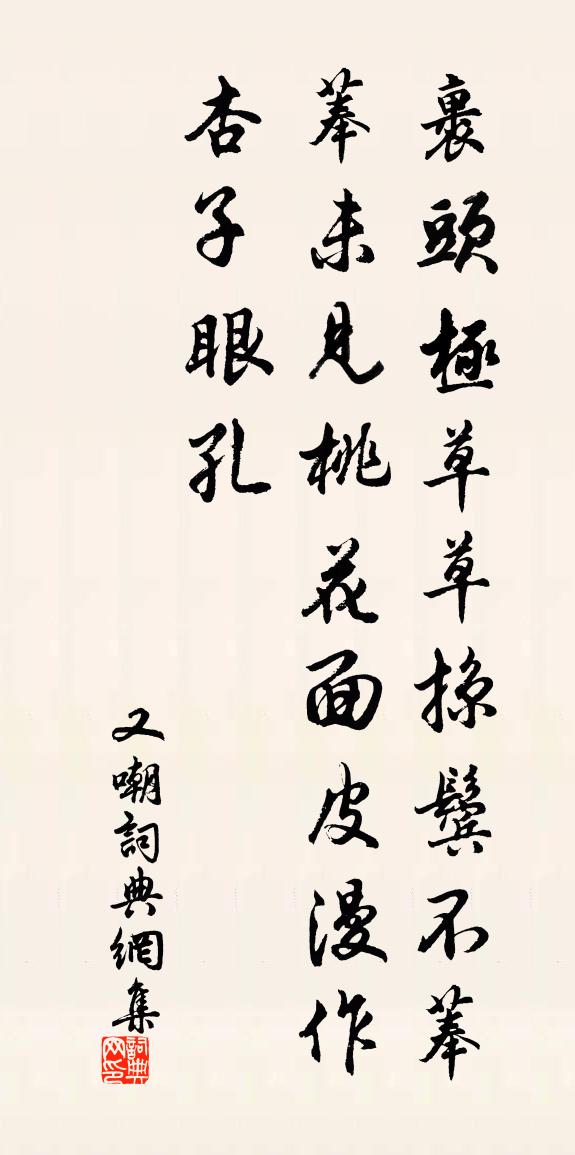 裹頭極草草掠鬢不菶
菶未見桃花面皮漫作
杏子眼孔
又嘲詞典網集
詞典网印